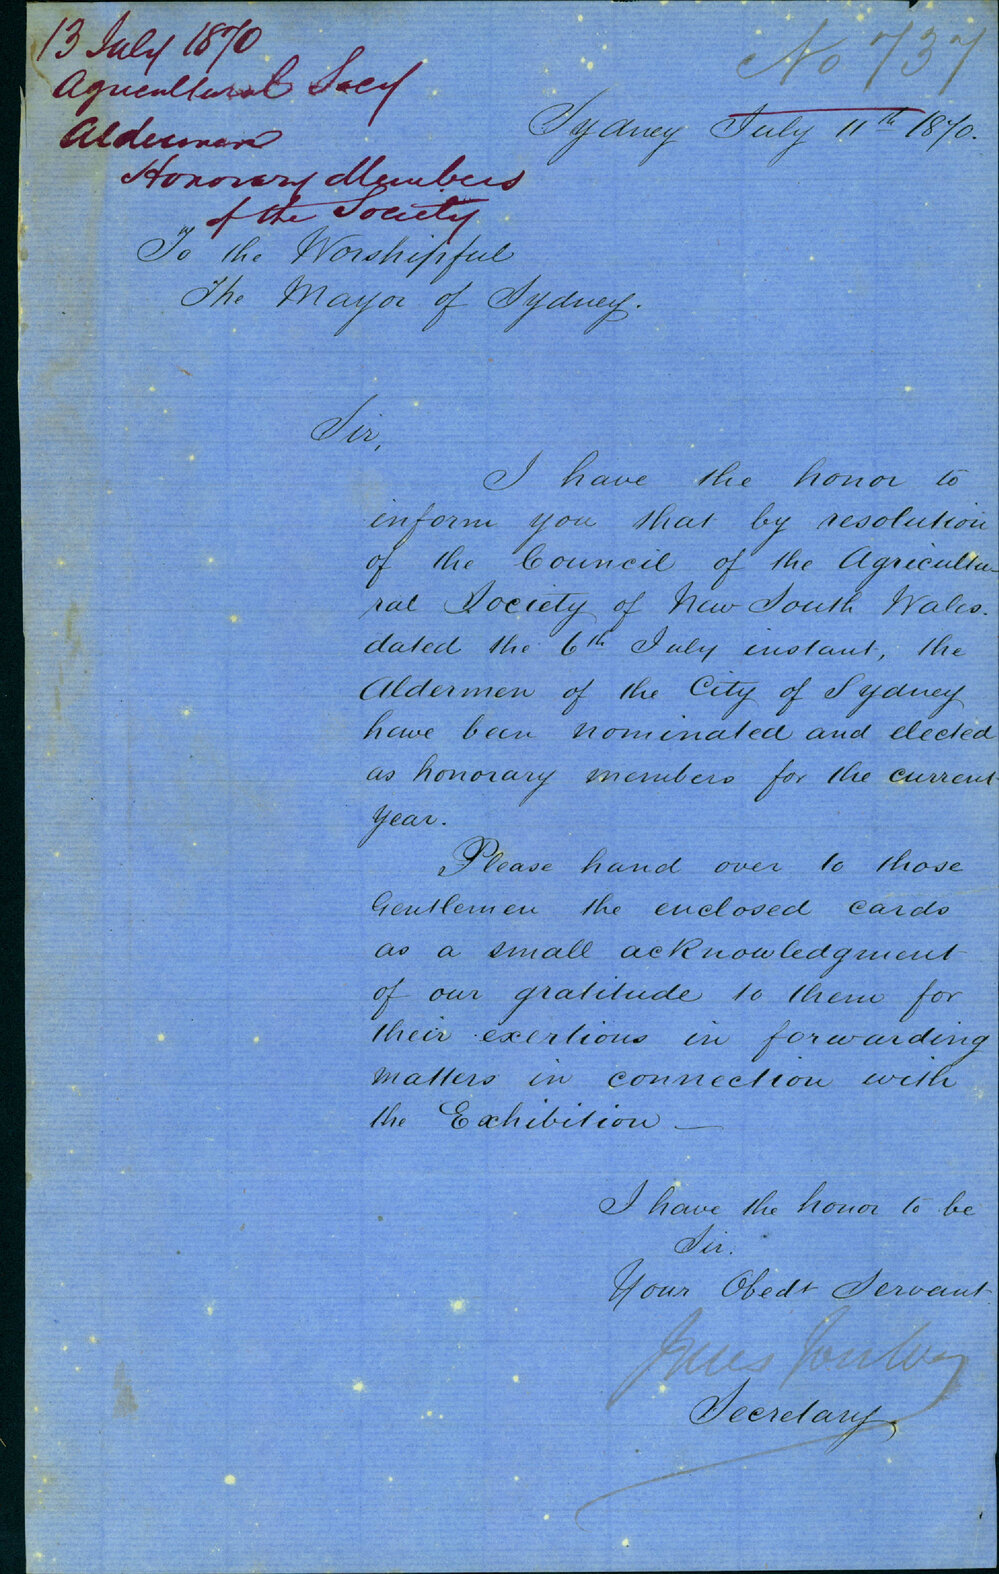 13 July 1870
Agricultural Socy
Aldermen
Honorary Members
of the Society
No 737
Sydney July 11th 1870.
To the Worshipful
The Mayor of Sydney.
Sir,
I have the honor to
inform you that by resolution
of the Council of the Agricultu-
ral Society of New South Wales.
dated the 6th July instant, the
Aldermen of the City of Sydney
have been nominated and elected
as honorary members for the current
year.
Please hand over to those
Gentlemen the enclosed cards
as a small acknowledgment
of our gratitude to them for
their exertions in forwarding
matters in connection with
the Exhibition —
I have the honor to be
Sir.
Your Obedt Servant
Jules Joubert
Secretary